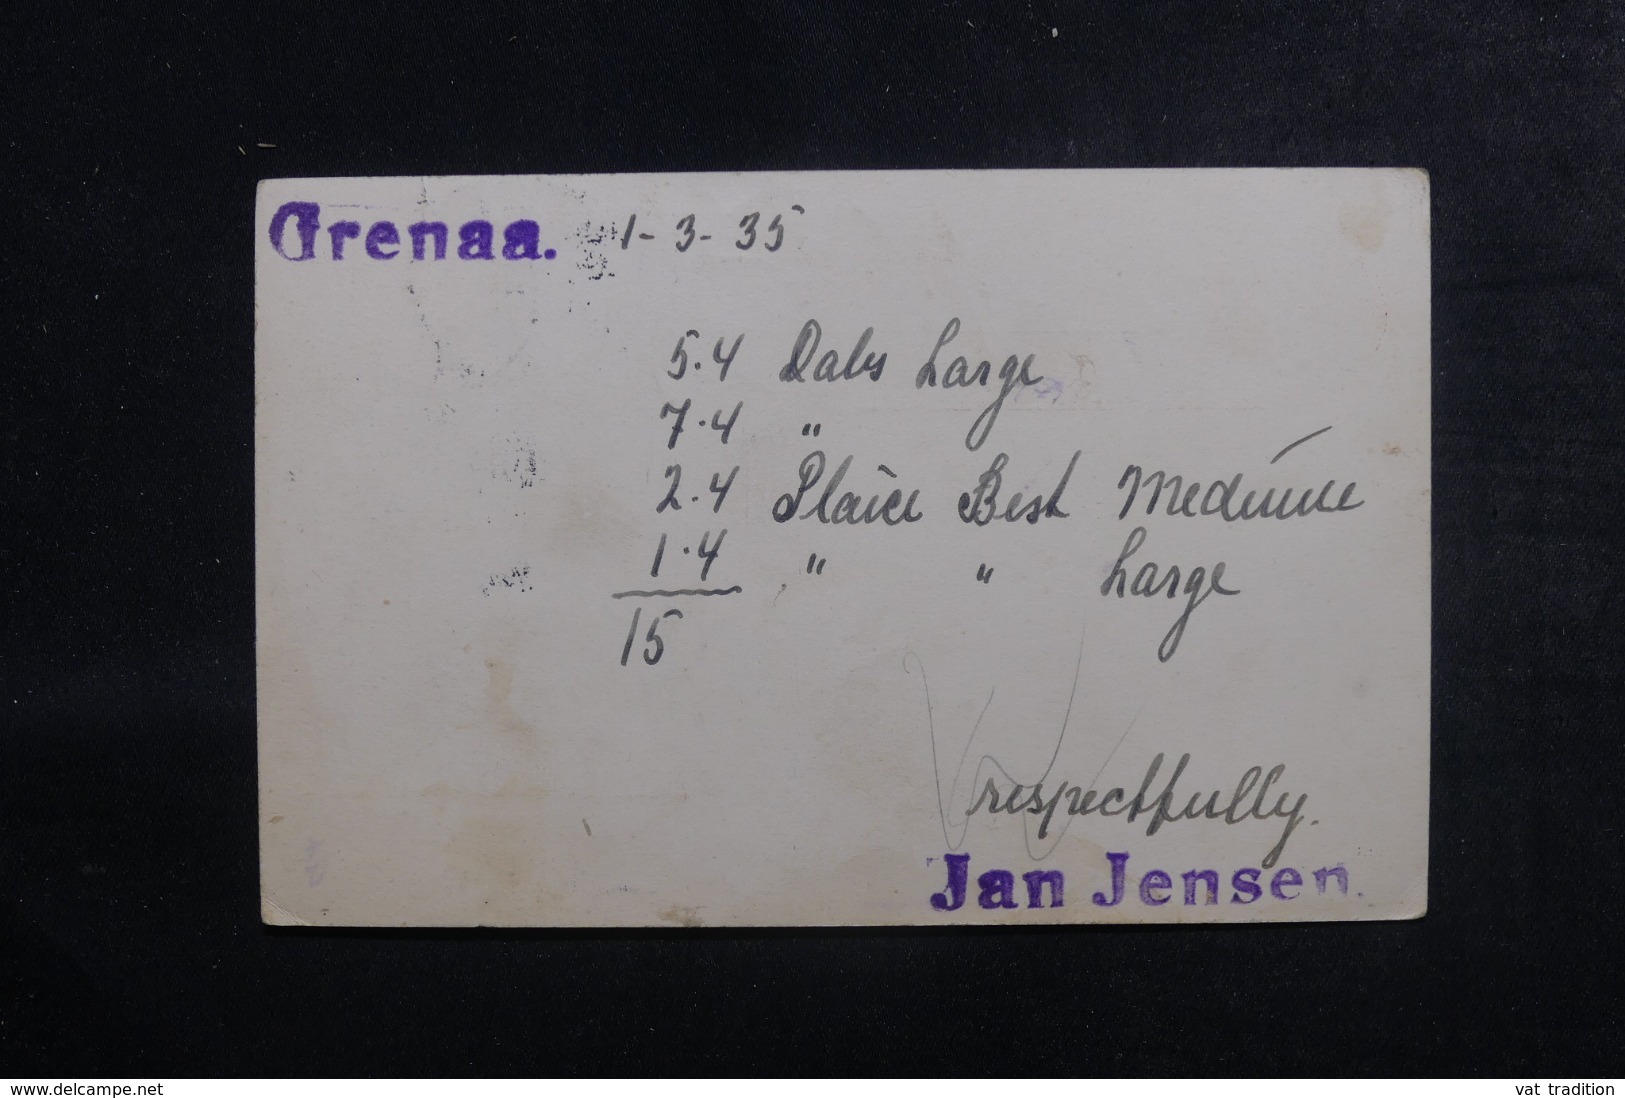 Grenaa. 1-3-35
5.4 Dabs Large
7.4 "
2.4 Plaice Best Medium
1.4 " " Large
15
respectfully.
Jan Jensen.
www.delcampe.net vat_tradition